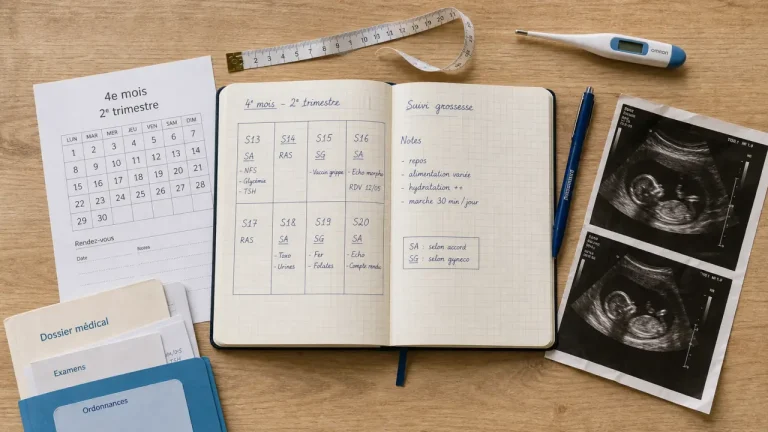 4e mois
2e trimestre
LUN MAR MER JEU VEN SAM DIM
1 2 3 4 5 6 7
8 9 10 11 12 13 14
15 16 17 18 19 20 21
22 23 24 25 26 27 28
29 30
Rendez-vous
Date
Dossier médical
Examens
TSH
Ordonnances
4e mois - 2e trimestre
S13
SA
- NFS
- Glycémie
- TSH
S14
RAS
S15
SG
- Vaccin grippe
S16
SA
- Echo morpho
RDV 12/05
S17
RAS
S18
SA
- Toxo
- Urines
S19
SG
- Fer
- Folates
S20
SA
- Echo
- Compte rendu
Suivi grossesse
Notes
- repos
- alimentation variée
- hydratation ++
- marche 30 min/jour
SA : selon accord
SG : selon gyneco
omron